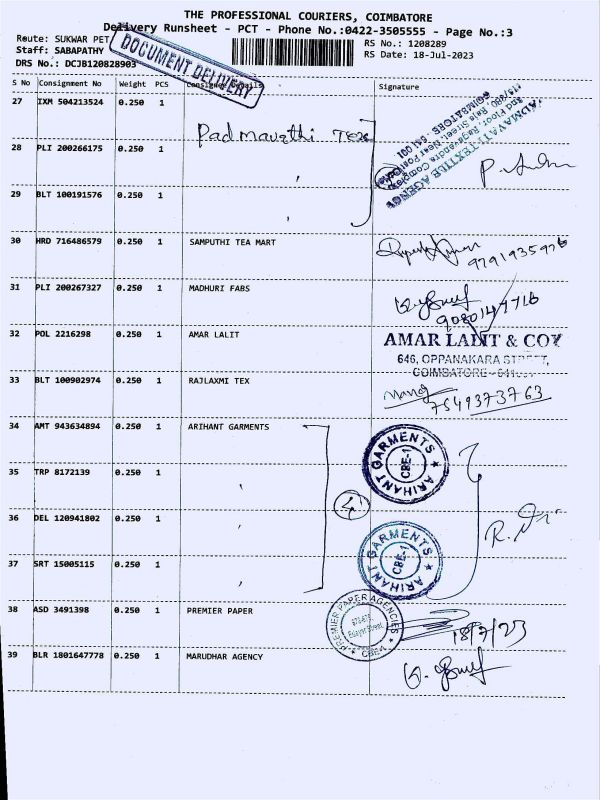 THE PROFESSIONAL COURIERS, COIMBATORE
Delivery Runsheet - PCT - Phone No.:0422-3505555 - Page No.:3
Route: SUKWAR PET
RS No.: 1208289
Staff: SABAPATHY
RS Date: 18-Jul-2023
DRS No.: DCJB120828903
DOCUMENT DELIVERY
S No Consignment No Weight PCS Consignee Details Signature
27 IXM 504213524 0.250 1
Padmavathi Tex
28 PLI 200266175 0.250 1
PADMAVATI TEXTILE AGENCY
2nd Floor, Raghavendra Complex
Raja Street, Near Post
COIMBATORE - 641 001
29 BLT 100191576 0.250 1
30 HRD 716486579 0.250 1 SAMPUTHI TEA MART
9791935976
31 PLI 200267327 0.250 1 MADHURI FABS
9080149716
32 POL 2216298 0.250 1 AMAR LALIT
AMAR LALIT & COY
646, OPPANAKARA STREET,
COIMBATORE - 641001
33 BLT 100902974 0.250 1 RAJLAXMI TEX
Manoj
7549373763
34 AMT 943634894 0.250 1 ARIHANT GARMENTS
ARIHANT GARMENTS
CBE-1
35 TRP 8172139 0.250 1
4
36 DEL 120941802 0.250 1
ARIHANT GARMENTS
CBE-1
37 SRT 15005115 0.250 1
38 ASD 3491398 0.250 1 PREMIER PAPER
PREMIER PAPER AGENCIES
CBE-1
18/7/23
39 BLR 1801647778 0.250 1 MARUDHAR AGENCY